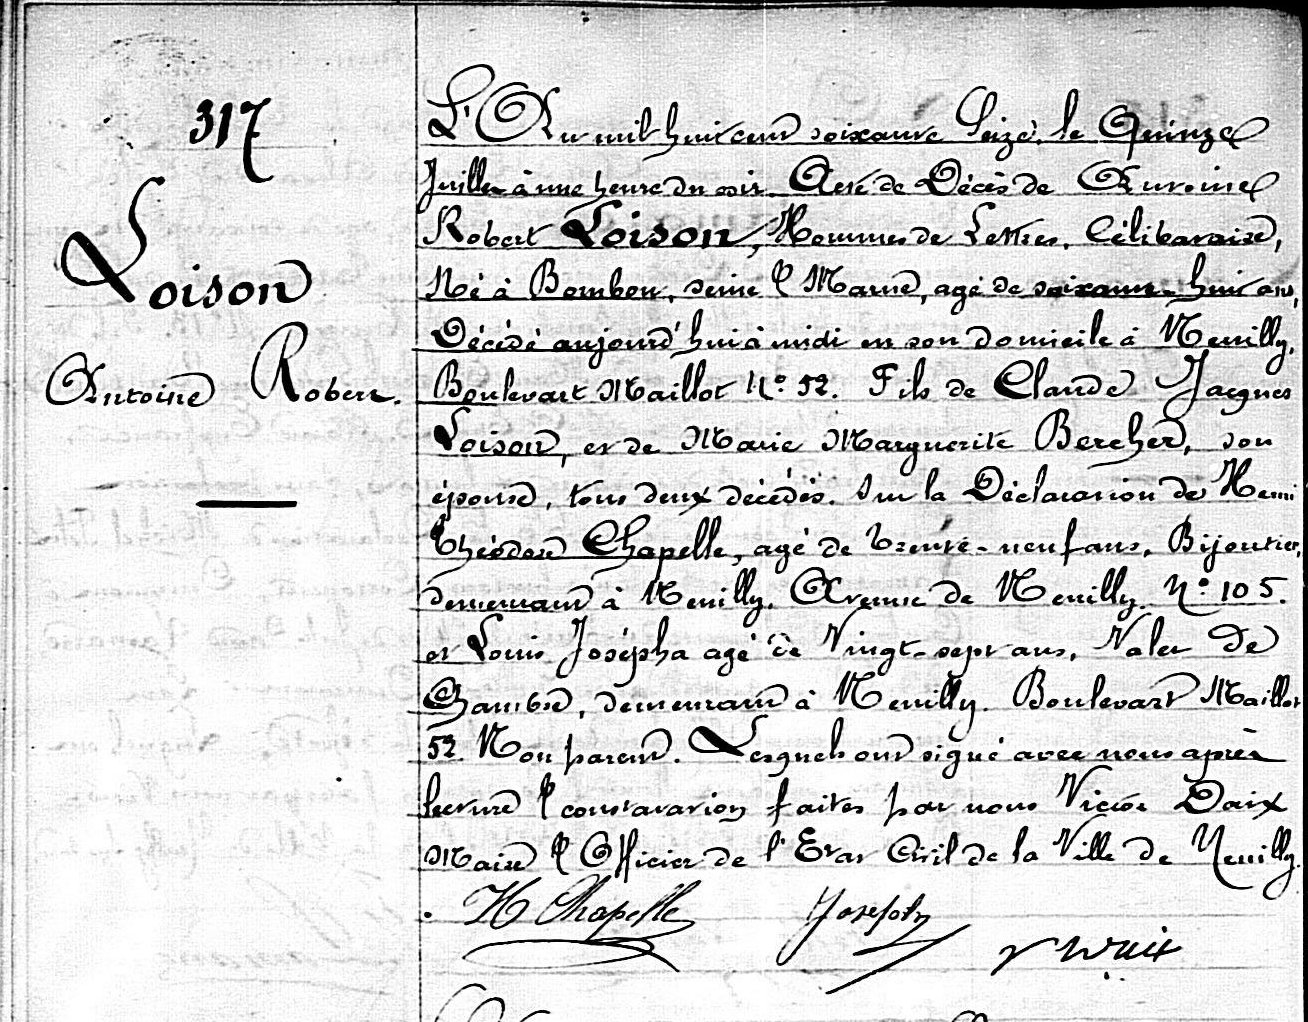 317
Loison
Antoine Robert.
L'An mil huit cent soixante seize, le Quinze
Juillet à une heure du soir. Acte de Décès de Antoine
Robert Loison, Hommes de Lettres, Célibataire,
Né à Bombon, Seine & Marne, agé de soixante huit ans,
Décédé aujourd'hui à midi en son domicile à Neuilly,
Boulevart Maillot No. 52. Fils de Claude Jacques
Loison, et de Marie Marguerite Bercher, son
épouse, tous deux décédés. Sur la Déclaration de Henri
Théodore Chapelle, agé de trente-neuf ans, Bijoutier,
demeurant à Neuilly, Avenue de Neuilly No. 105.
et Louis Joséph agé de Vingt-sept ans, Valet De
Chambre, demeurant à Neuilly. Boulevart Maillot
52. Non parent. Lesquels ont signé avec nous après
lecture & constatation faites par nous Victor Daix
Maire & Officier de l'Etat Civil de la Ville de Neuilly.
H Chapelle Joseph
V Daix